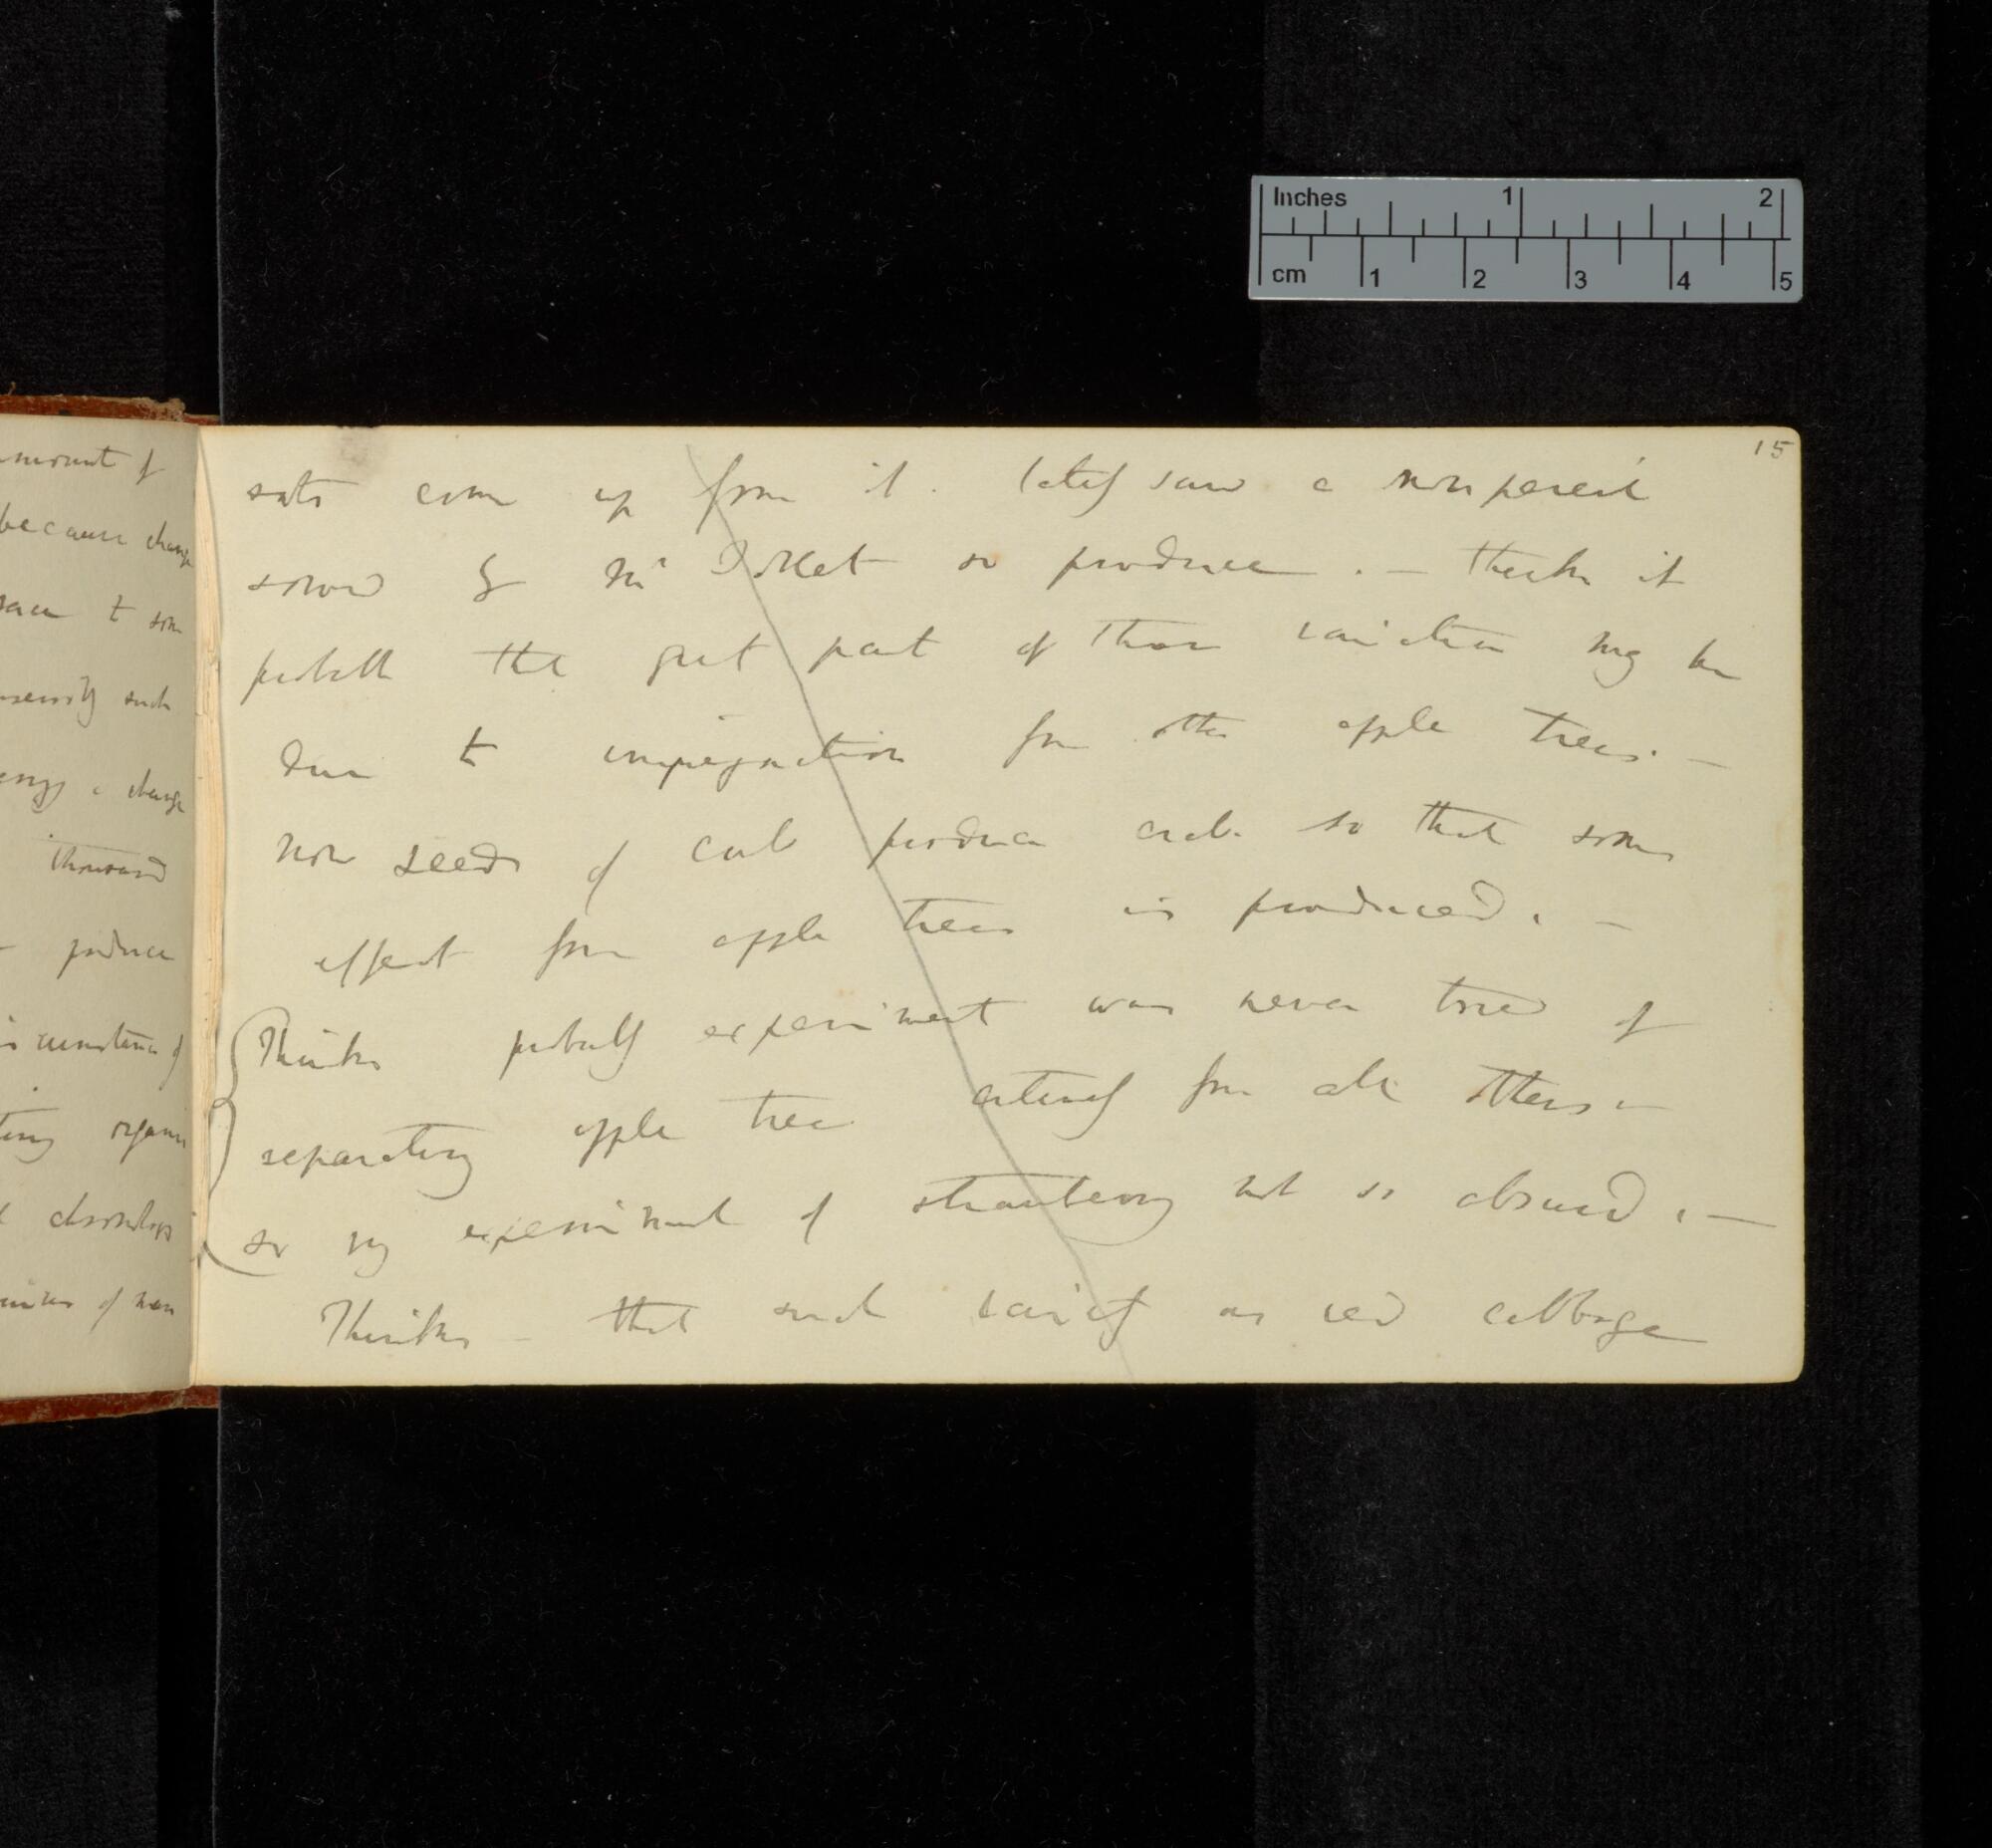 amount of
because change
to some
such
change
thousand
produce
circumstance of
organs
of man
15
sorts come up from it. lately saw a nonpareil
sowed by Mr Tollet so produce. — thinks it
probable the great part of those variation may be
due to impregnation from other apple trees. —
now seeds of crab produce crabs so that some
effect from apple trees is produced. —
Thinks probably experiment was never tried of
separating apple tree entirely from all others. —
so my experiment of strawberry not so absurd. —
Thinks — that such variety as red cabbage
Inches 1 2
cm 1 2 3 4 5